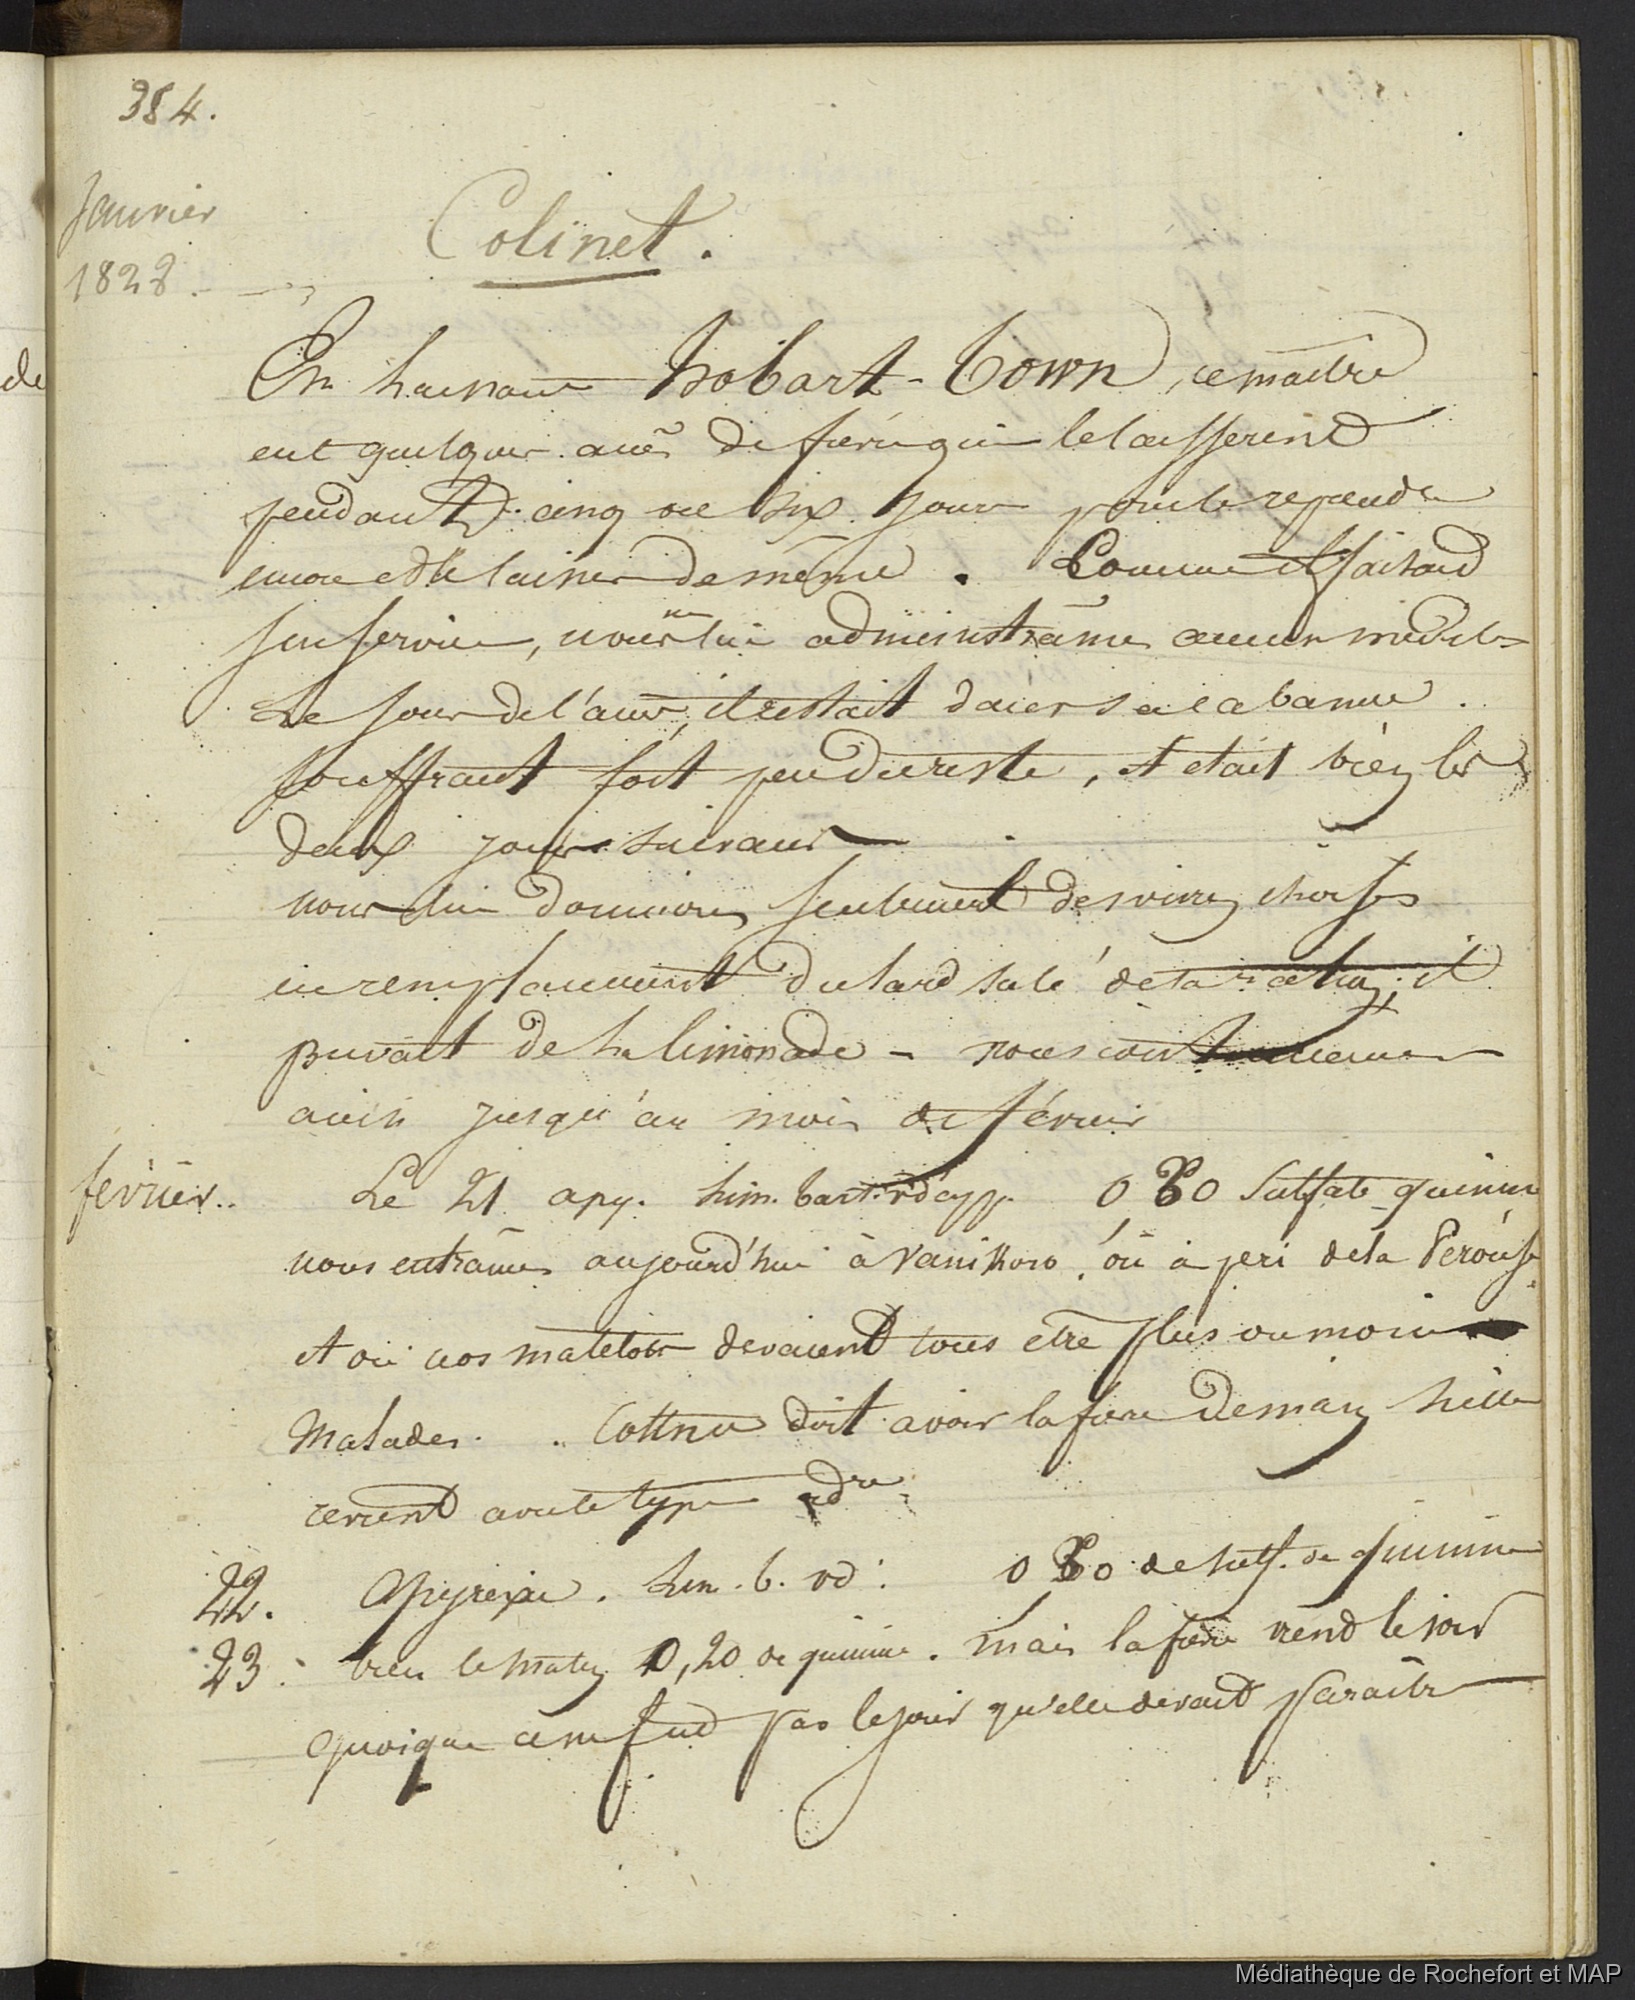 384.
Janvier
1828.
Colinet.
En laissant hobart-Town, ce maitre
eut quelques accès de fièvre qui le laisserent
pendant cinq ou six jours pour le reprendre
encore et le laisser de même. Comme il faisait
son service, nous ne lui administrâmes aucun médict
Le jour de l'accès, il restait dans sa cabanne.
souffrant fort peu du reste, et etait bien les
deux jours suivans
nous lui donnions seulement des vivres
en remplacement du lard salé de la ration; il
buvait de la limonade - nous continuames
ainsi jusqu'au mois de février
février.. Le 21 apy. lim. tart. rd 0 60 sulfate quinine
nous entrâmes aujourd'hui à Vanikoro, où à peri dela Perouse
et où nos matelots devaient tous etre plus ou moins
Malades. doit avoir la fievre demain si elle
revient avec le type
22. Apyrexie. lim. b. rd: 0 60 de sulf. de quinine
23. bien le matin 0,20 de quinine. mais la fievre vient le soir
quoique ce ne fut pas le jour qu'elle devait paraître
Médiathèque de Rochefort et MAP